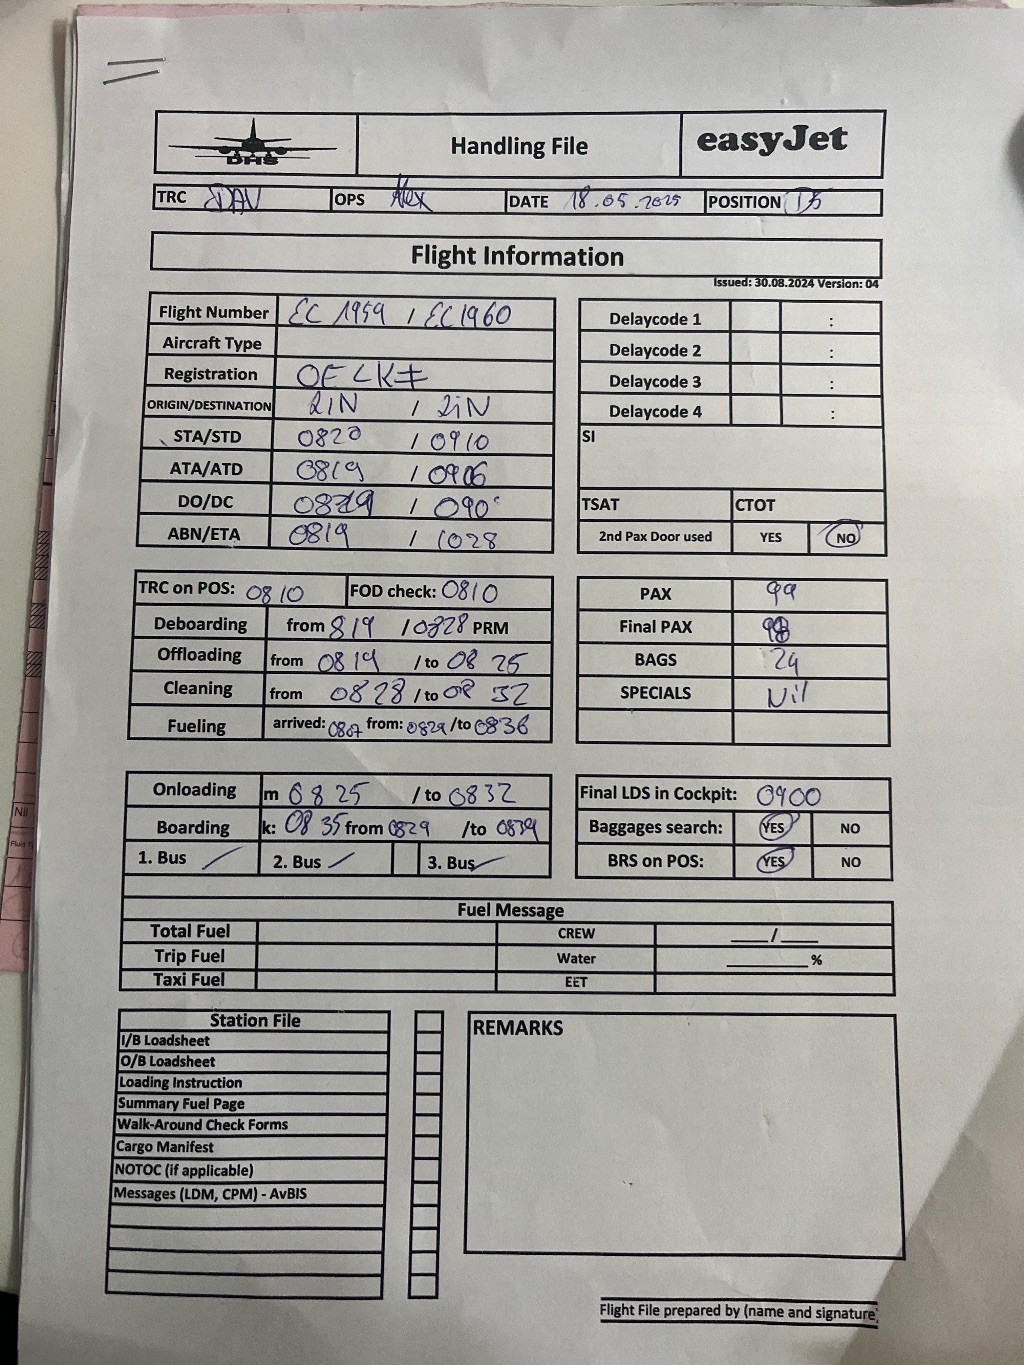 DHS Handling File easyJet
TRC DAV OPS Alex DATE 18.05.2025 POSITION 15
Flight Information
Issued: 30.08.2024 Version: 04
Flight Number EC 1959 / EC1960
Aircraft Type
Registration OE LK
ORIGIN/DESTINATION LIN / LiN
STA/STD 0820 / 0910
ATA/ATD 0819 / 0906
DO/DC 0819 / 090
ABN/ETA 0819 / 1028
Delaycode 1 :
Delaycode 2 :
Delaycode 3 :
Delaycode 4 :
SI
TSAT CTOT
2nd Pax Door used YES NO
TRC on POS: 0810 FOD check: 0810
Deboarding from 819 / 0828 PRM
Offloading from 0819 / to 08 25
Cleaning from 0828 / to 08 32
Fueling arrived: 0807 from: 0829 /to 0836
PAX 99
Final PAX 98
BAGS 24
SPECIALS Nil
Onloading m 0825 / to 0832
Boarding k: 0835 from 0829 /to 0839
1. Bus 2. Bus 3. Bus
Final LDS in Cockpit: 0900
Baggages search: YES NO
BRS on POS: YES NO
Fuel Message
Total Fuel CREW ___/___
Trip Fuel Water ______%
Taxi Fuel EET
Station File
I/B Loadsheet
O/B Loadsheet
Loading Instruction
Summary Fuel Page
Walk-Around Check Forms
Cargo Manifest
NOTOC (if applicable)
Messages (LDM, CPM) - AvBIS
REMARKS
Flight File prepared by (name and signature)
Nil